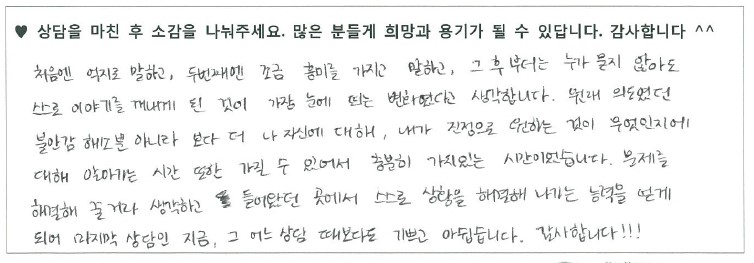 ♥ 상담을 마친 후 소감을 나눠주세요. 많은 분들게 희망과 용기가 될 수 있답니다. 감사합니다 ^^
처음엔 억지로 말하고, 두번째엔 조금 흥미를 가지고 말하고, 그 후부터는 누가 묻지 않아도
스스로 이야기를 꺼내게 된 것이 가장 눈에 띄는 변화였다고 생각합니다. 원래 의도였던
불안감 해소뿐 아니라 보다 더 나 자신에 대해, 내가 진정으로 원하는 것이 무엇인지에
대해 알아가는 시간 또한 가질 수 있어서 충분히 가치있는 시간이었습니다. 문제를
해결해 줄거라 생각하고 들어왔던 곳에서 스스로 상황을 해결해 나가는 능력을 얻게
되어 마지막 상담인 지금, 그 어느 상담 때보다도 기쁘고 아쉽습니다. 감사합니다!!!